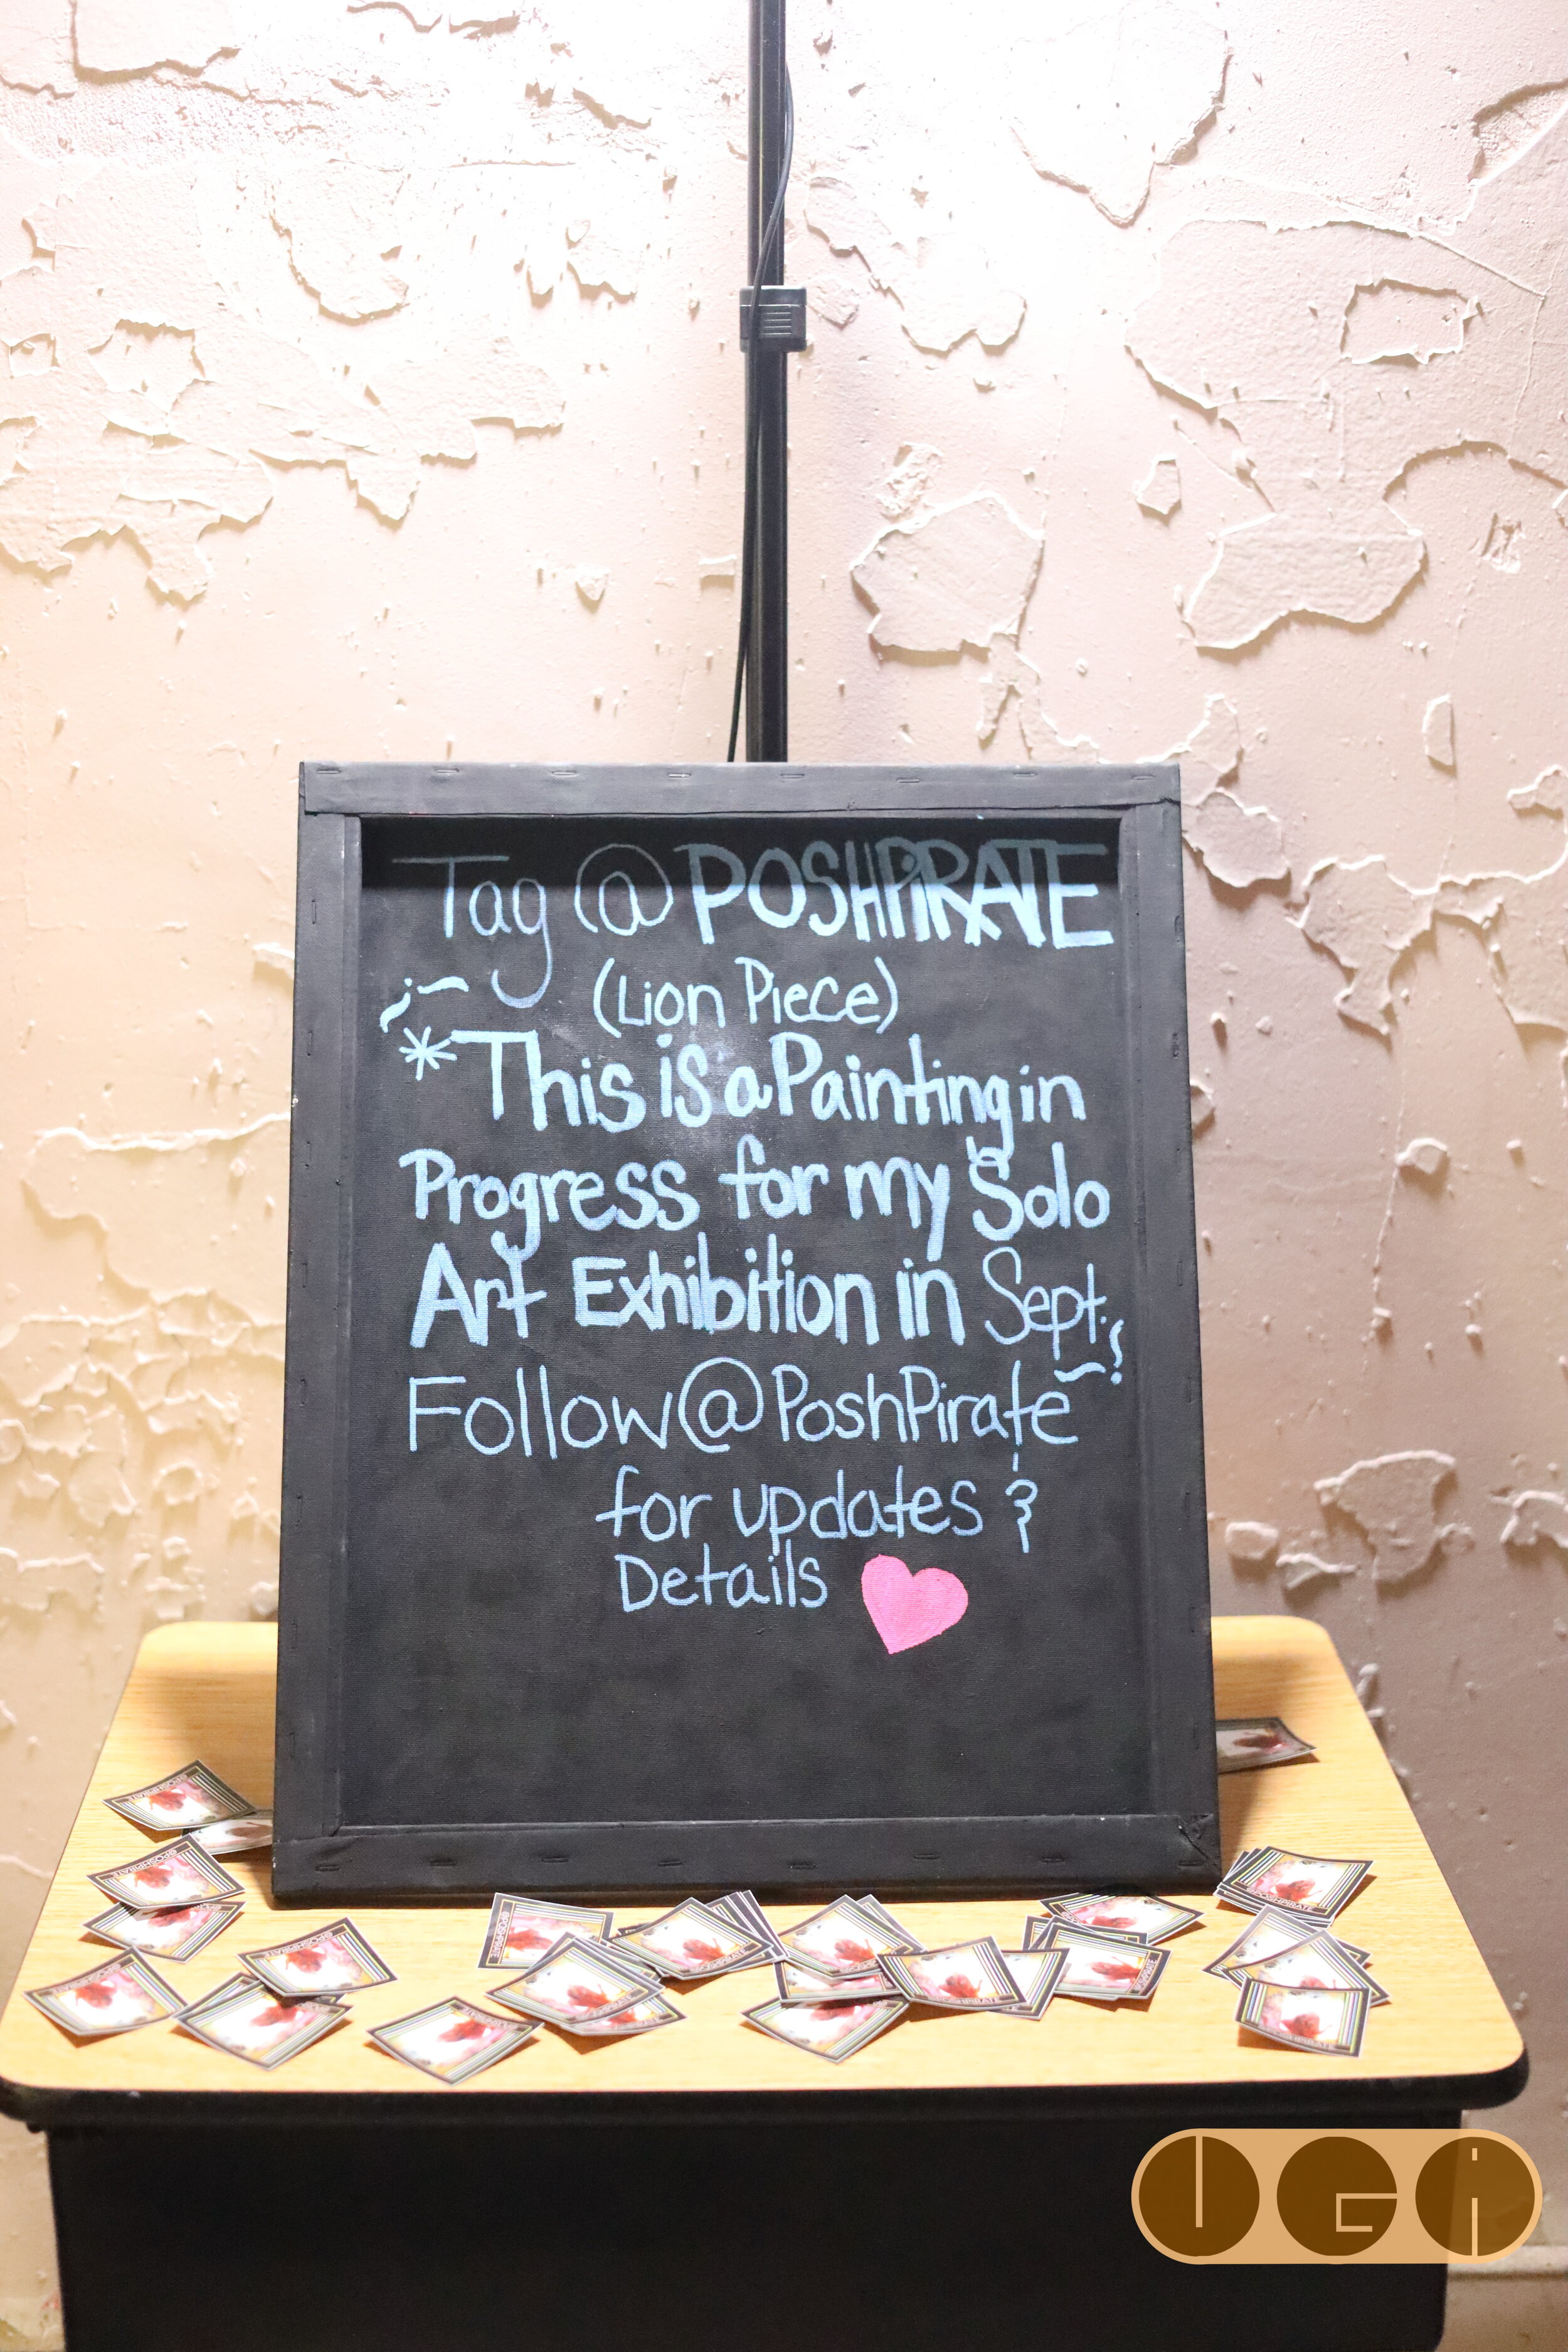 Tag @POSHPiRATE
(Lion Piece)
*This is a Painting in
Progress for my Solo
Art Exhibition in Sept.
Follow @PoshPirate
for updates &
Details